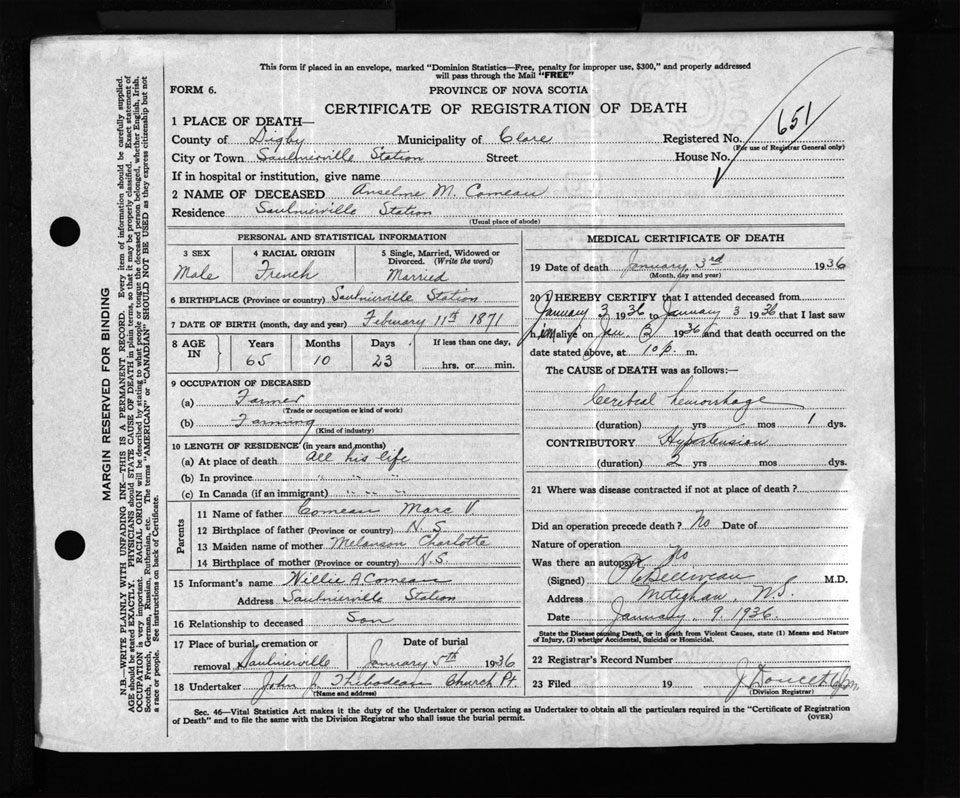 This form if placed in an envelope, marked "Dominion Statistics—Free, penalty for improper use, $300," and properly addressed
will pass through the Mail "FREE"
FORM 6.
PROVINCE OF NOVA SCOTIA
CERTIFICATE OF REGISTRATION OF DEATH
1 PLACE OF DEATH—
County of Digby Municipality of Clare Registered No. 651
(For use of Registrar General only)
City or Town Saulnierville Station Street House No.
If in hospital or institution, give name
2 NAME OF DECEASED Anselme M. Comeau
Residence Saulnierville Station
(Usual place of abode)
PERSONAL AND STATISTICAL INFORMATION
3 SEX 4 RACIAL ORIGIN 5 Single, Married, Widowed or Divorced. (Write the word)
Male French Married
6 BIRTHPLACE (Province or country) Saulnierville Station
7 DATE OF BIRTH (month, day and year) February 11th 1871
8 AGE IN Years Months Days If less than one day,
65 10 23 hrs. or min.
9 OCCUPATION OF DECEASED
(a) Farmer
(Trade or occupation or kind of work)
(b) Farming
(Kind of industry)
10 LENGTH OF RESIDENCE (in years and months)
(a) At place of death All his life
(b) In province " " "
(c) In Canada (if an immigrant) " " "
Parents
11 Name of father Comeau Marc V.
12 Birthplace of father (Province or country) N.S.
13 Maiden name of mother Melanson Charlotte
14 Birthplace of mother (Province or country) N.S.
15 Informant's name Willie A Comeau
Address Saulnierville Station
16 Relationship to deceased Son
17 Place of burial, cremation or removal Saulnierville Date of burial January 5th 1936
18 Undertaker John J. Thibodeau Church Pt.
(Name and address)
MEDICAL CERTIFICATE OF DEATH
19 Date of death January 3rd 1936
(Month, day and year)
20 I HEREBY CERTIFY that I attended deceased from
January 3 1936 to January 3 1936 that I last saw
him alive on Jan. 3 1936 and that death occurred on the
date stated above, at 10 p. m.
The CAUSE of DEATH was as follows:—
Cerebral hemorrhage
(duration) yrs mos 1 dys.
CONTRIBUTORY Hypertension
(duration) 2 yrs mos dys.
21 Where was disease contracted if not at place of death?
Did an operation precede death? No Date of
Nature of operation
Was there an autopsy? No
(Signed) Belliveau M.D.
Address Meteghan, N.S.
Date January 9. 1936.
State the Disease causing Death, or in death from Violent Causes, state (1) Means and Nature
of Injury, (2) whether Accidental, Suicidal or Homicidal.
22 Registrar's Record Number
23 Filed 19 J. Doucett
(Division Registrar)
Sec. 46—Vital Statistics Act makes it the duty of the Undertaker or person acting as Undertaker to obtain all the particulars required in the "Certificate of Registration
of Death" and to file the same with the Division Registrar who shall issue the burial permit.
(OVER)
MARGIN RESERVED FOR BINDING
N.B.—WRITE PLAINLY WITH UNFADING INK—THIS IS A PERMANENT RECORD. Every item of information should be carefully supplied.
AGE should be stated EXACTLY. PHYSICIANS should STATE CAUSE OF DEATH in plain terms, so that it may be properly classified. Exact statement of
OCCUPATION is very important. RACIAL ORIGIN will be described by stating to what people or tongue the deceased person belonged, whether English, Irish,
Scotch, French, German, Russian, Ruthenian, etc. The terms "AMERICAN" or "CANADIAN" SHOULD NOT BE USED as they express citizenship but not
a race or people. See instructions on back of Certificate.